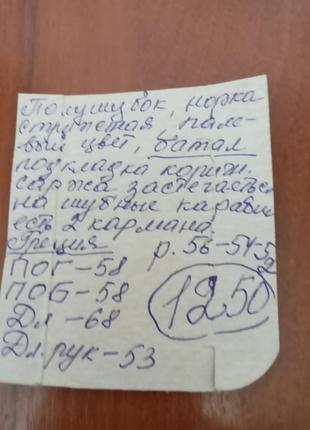 Полушубок, норка
стриженая, пале-
вый цвет, батал
подкладка коричн.
саржа застегается
на шубные
есть 2 кармана.
Греция р. 56-54-52
ПОГ-58
ПОБ-58
Дл -68
Дл.рук-53
1250